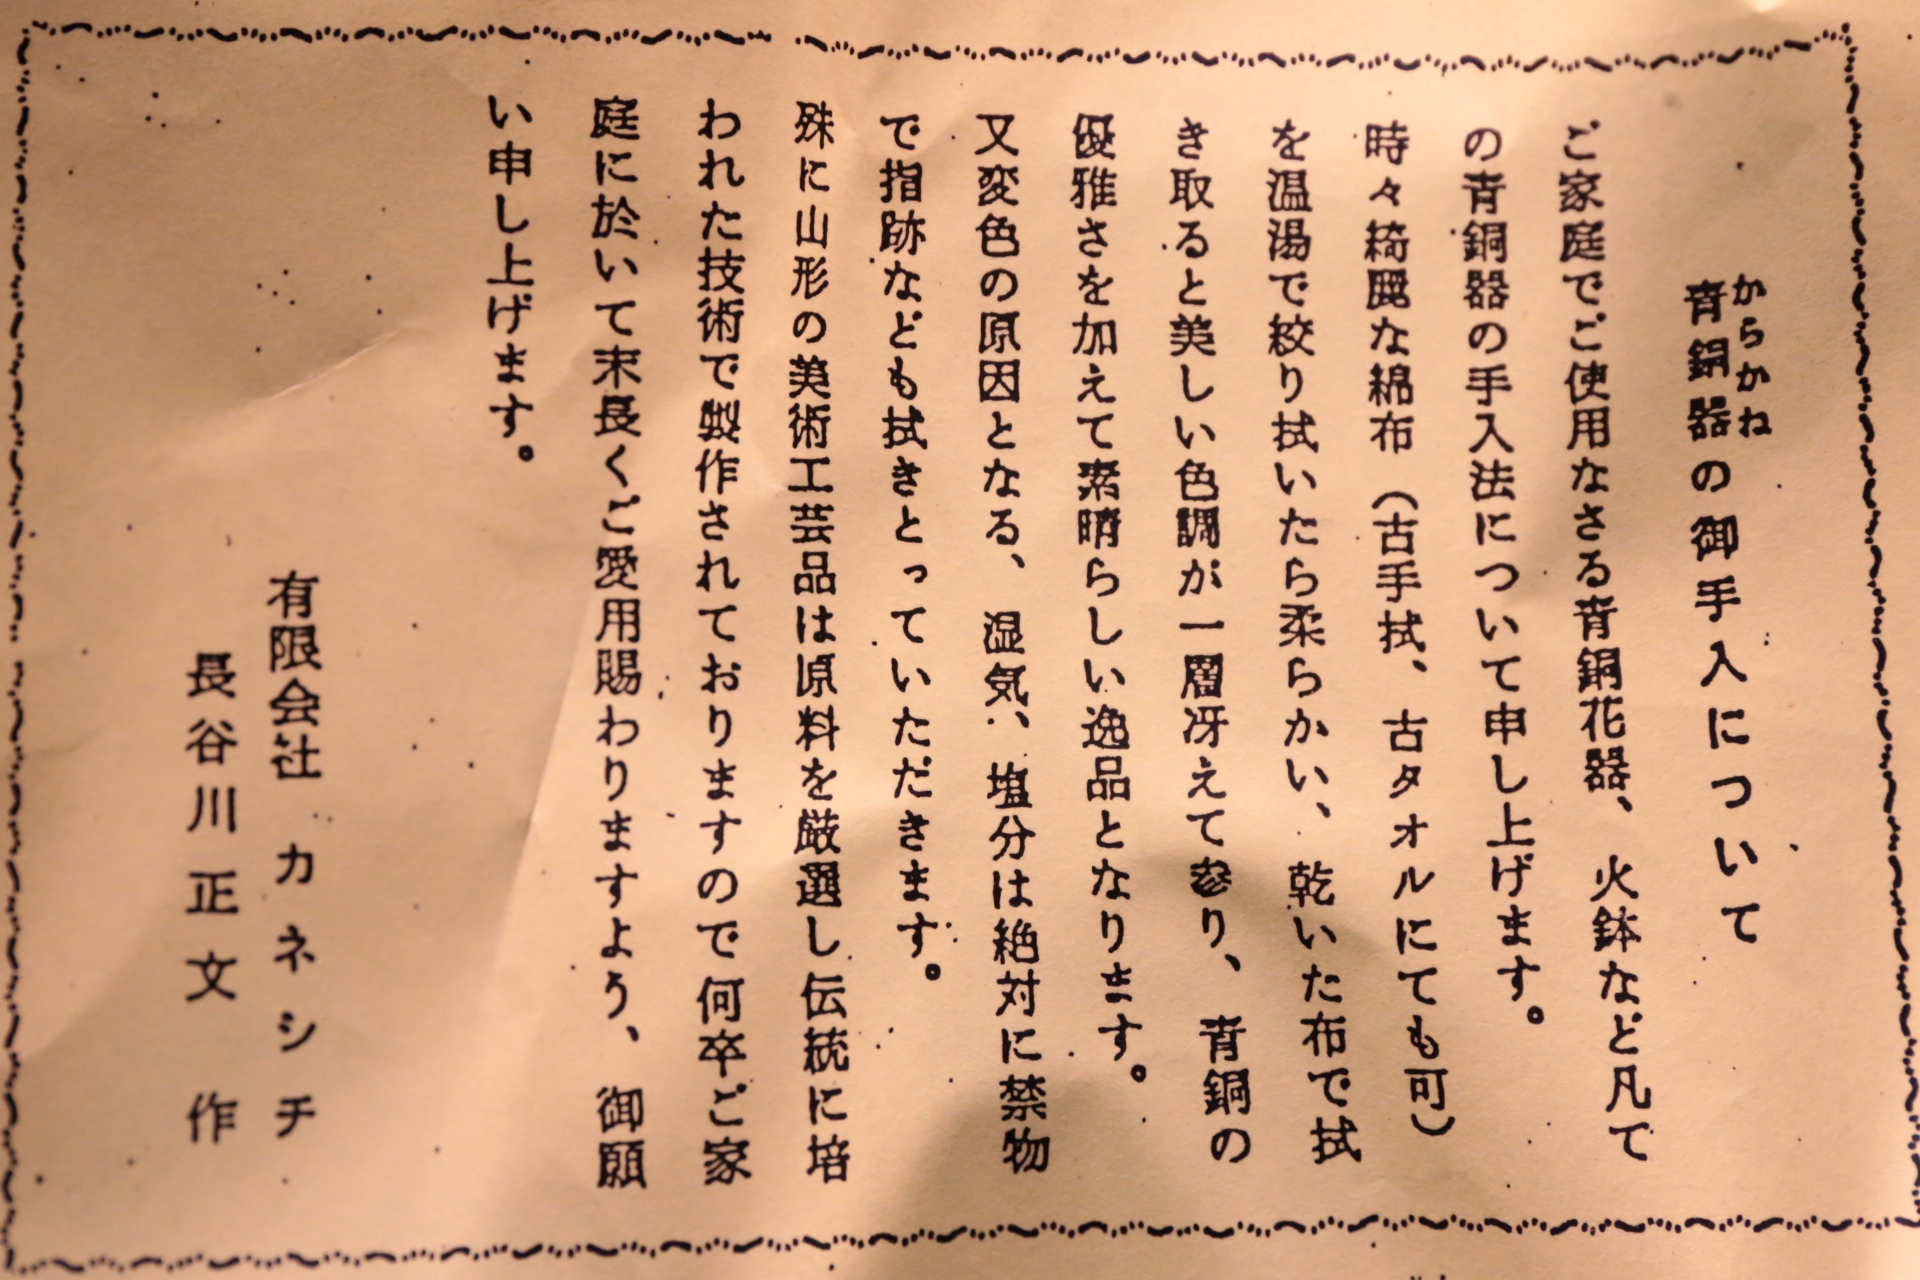 からかね
青銅器の御手入について
ご家庭でご使用なさる青銅花器、火鉢など凡て
の青銅器の手入法について申し上げます。
時々綺麗な綿布（古手拭、古タオルにても可）
を温湯で絞り拭いたら柔らかい、乾いた布で拭
き取ると美しい色調が一層冴えて参り、青銅の
優雅さを加えて素晴らしい逸品となります。
又変色の原因となる、湿気、塩分は絶対に禁物
で指跡なども拭きとっていただきます。
殊に山形の美術工芸品は原料を厳選し伝統に培
われた技術で製作されておりますので何卒ご家
庭に於いて末長くご愛用賜わりますよう、御願
い申し上げます。
有限会社 カネシチ
長谷川正文 作